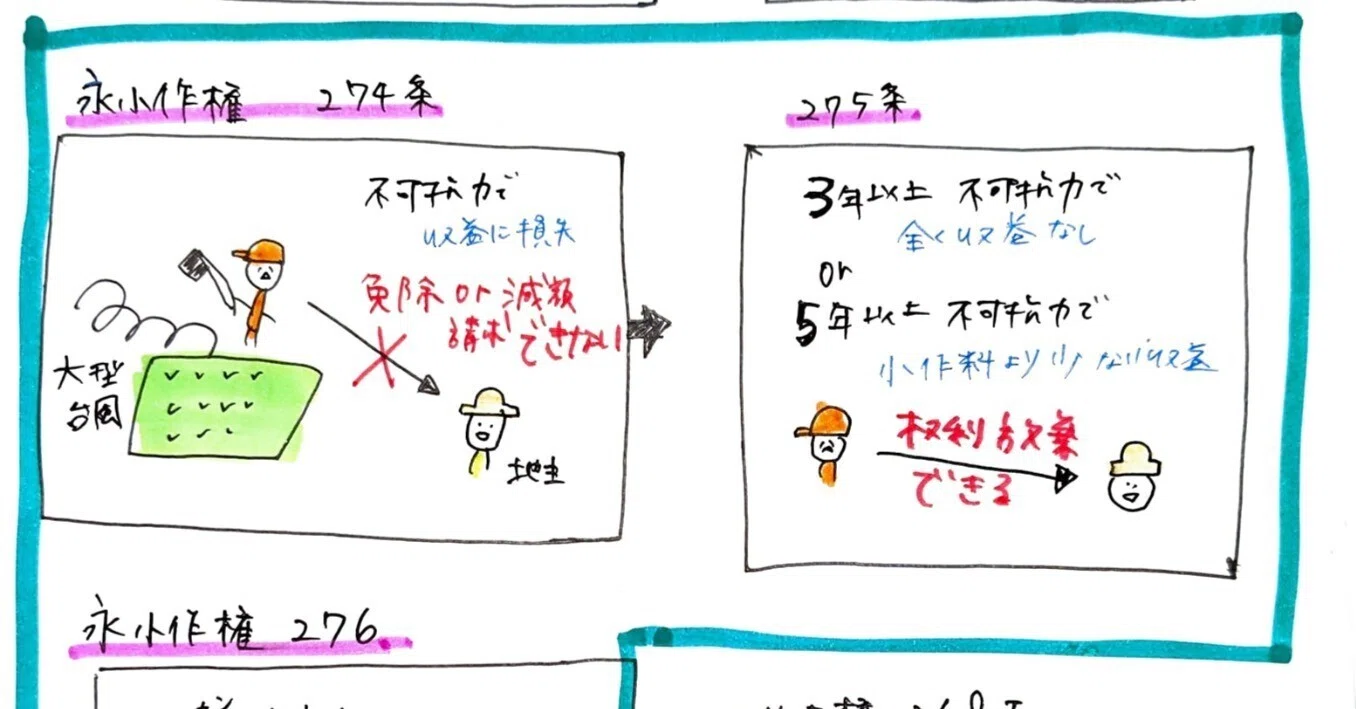 永小作権 274条
不可抗力で
収益に損失
免除 or 減額
請求できない
大型
台風
地主
275条
3年以上 不可抗力で
全く収益なし
or
5年以上 不可抗力で
小作料より少ない収益
権利放棄
できる
永小作権 276